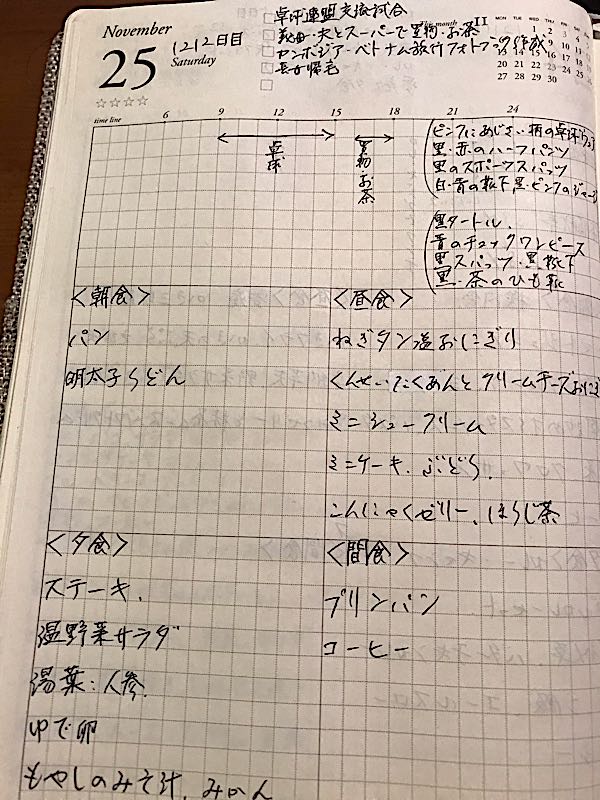 November
25
Saturday
1212日目
卓球連盟交流試合
夫とスーパーで買物・お茶
カンボジア・ベトナム旅行フォトブック作成
長女帰宅
This month 11
MON TUE WED THU FRI
1 2 3
6 7 8 9 10
13 14 15 16 17
20 21 22 23 24
27 28 29 30
☆☆☆☆
time line 6 9 12 15 18 21 24
卓球
買物・お茶
ピンクにあじさい柄の卓球
黒・赤のハーフパンツ
黒のスポーツスパッツ
白・青の靴下 黒・ピンクのジャージ
黒タートル、
青のチェックワンピース
黒スパッツ・黒靴下
黒・茶のひも靴
<朝食>
パン
明太子うどん
<昼食>
ねぎタン塩おにぎり
くんせいたくあんとクリームチーズおにぎ
ミニシュークリーム
ミニケーキ、ぶどう、
こんにゃくゼリー、ほうじ茶
<夕食>
ステーキ、
温野菜サラダ
湯葉:人参、
ゆで卵
もやしのみそ汁、みかん
<間食>
プリンパン
コーヒー